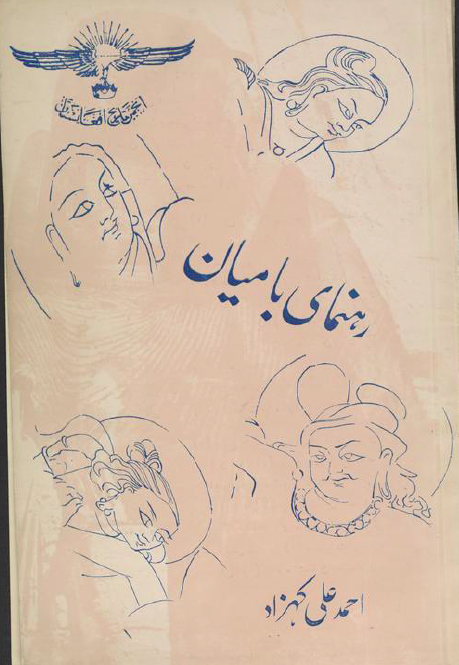 انجمن تاریخ افغانستان
رهنمای بامیان
احمد علی کهزاد